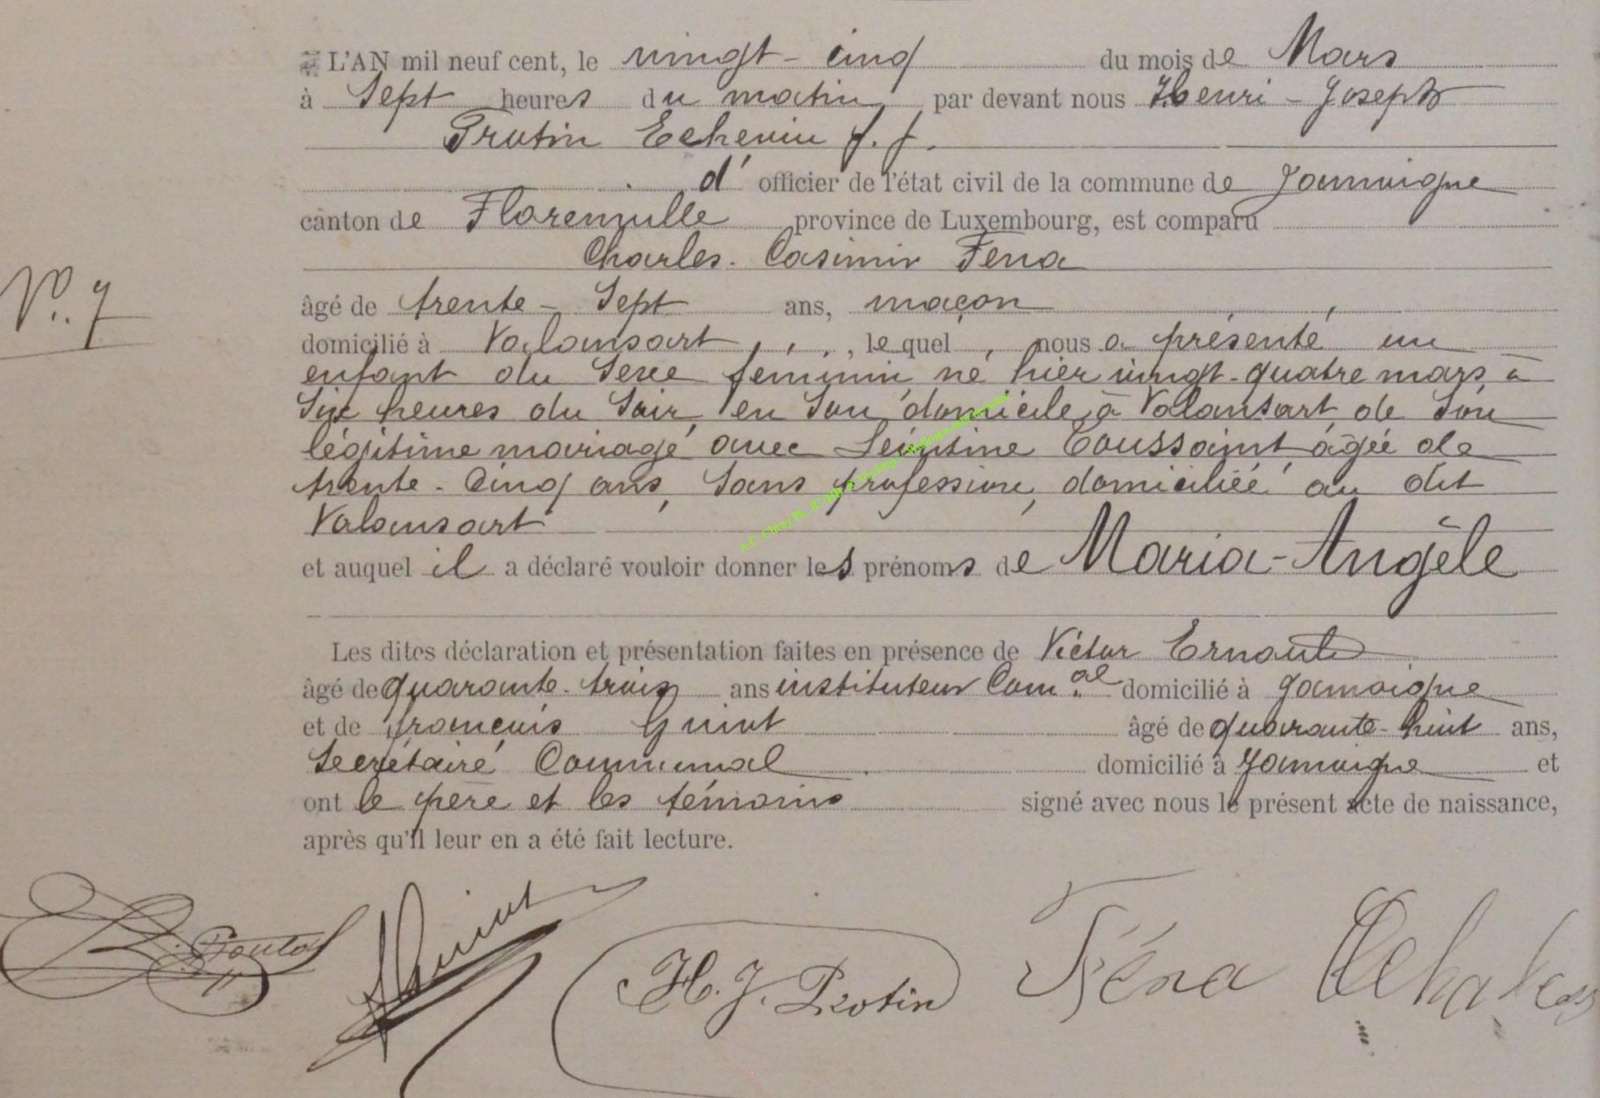 L'AN mil neuf cent, le vingt-cinq du mois de Mars
à Sept heures du matin, par devant nous Henri-Joseph
Protin Echevin f. f.
d' officier de l'état civil de la commune de Jamoigne
canton de Florenville province de Luxembourg, est comparu
Charles-Casimir Fena
N°. 7
âgé de trente-Sept ans, maçon,
domicilié à Valansart, lequel, nous a présenté un
enfant du Sexe feminin né hier vingt-quatre mars à
Six heures du Soir, en Son domicile, à Valansart, de Son
légitime mariage avec Léontine Toussaint âgée de
trente-Cinq ans, Sans profession, domiciliée au dit
Valansart
et auquel il a déclaré vouloir donner les prénoms de Maria-Angèle
Les dites déclaration et présentation faites en présence de Victor
âgé de quarante-trois ans instituteur Com.al domicilié à Jamoigne
et de françois Guiot âgé de quarante-huit ans,
Secrétaire Communal domicilié à Jamoigne et
ont le père et les témoins signé avec nous le présent acte de naissance,
après qu'il leur en a été fait lecture.
H. J. Protin Féna Charles